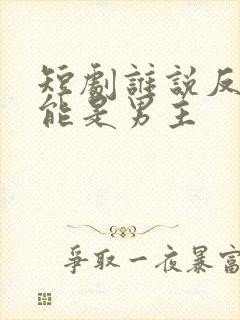 短劇誰說反
能是男主
爭取一夜暴富